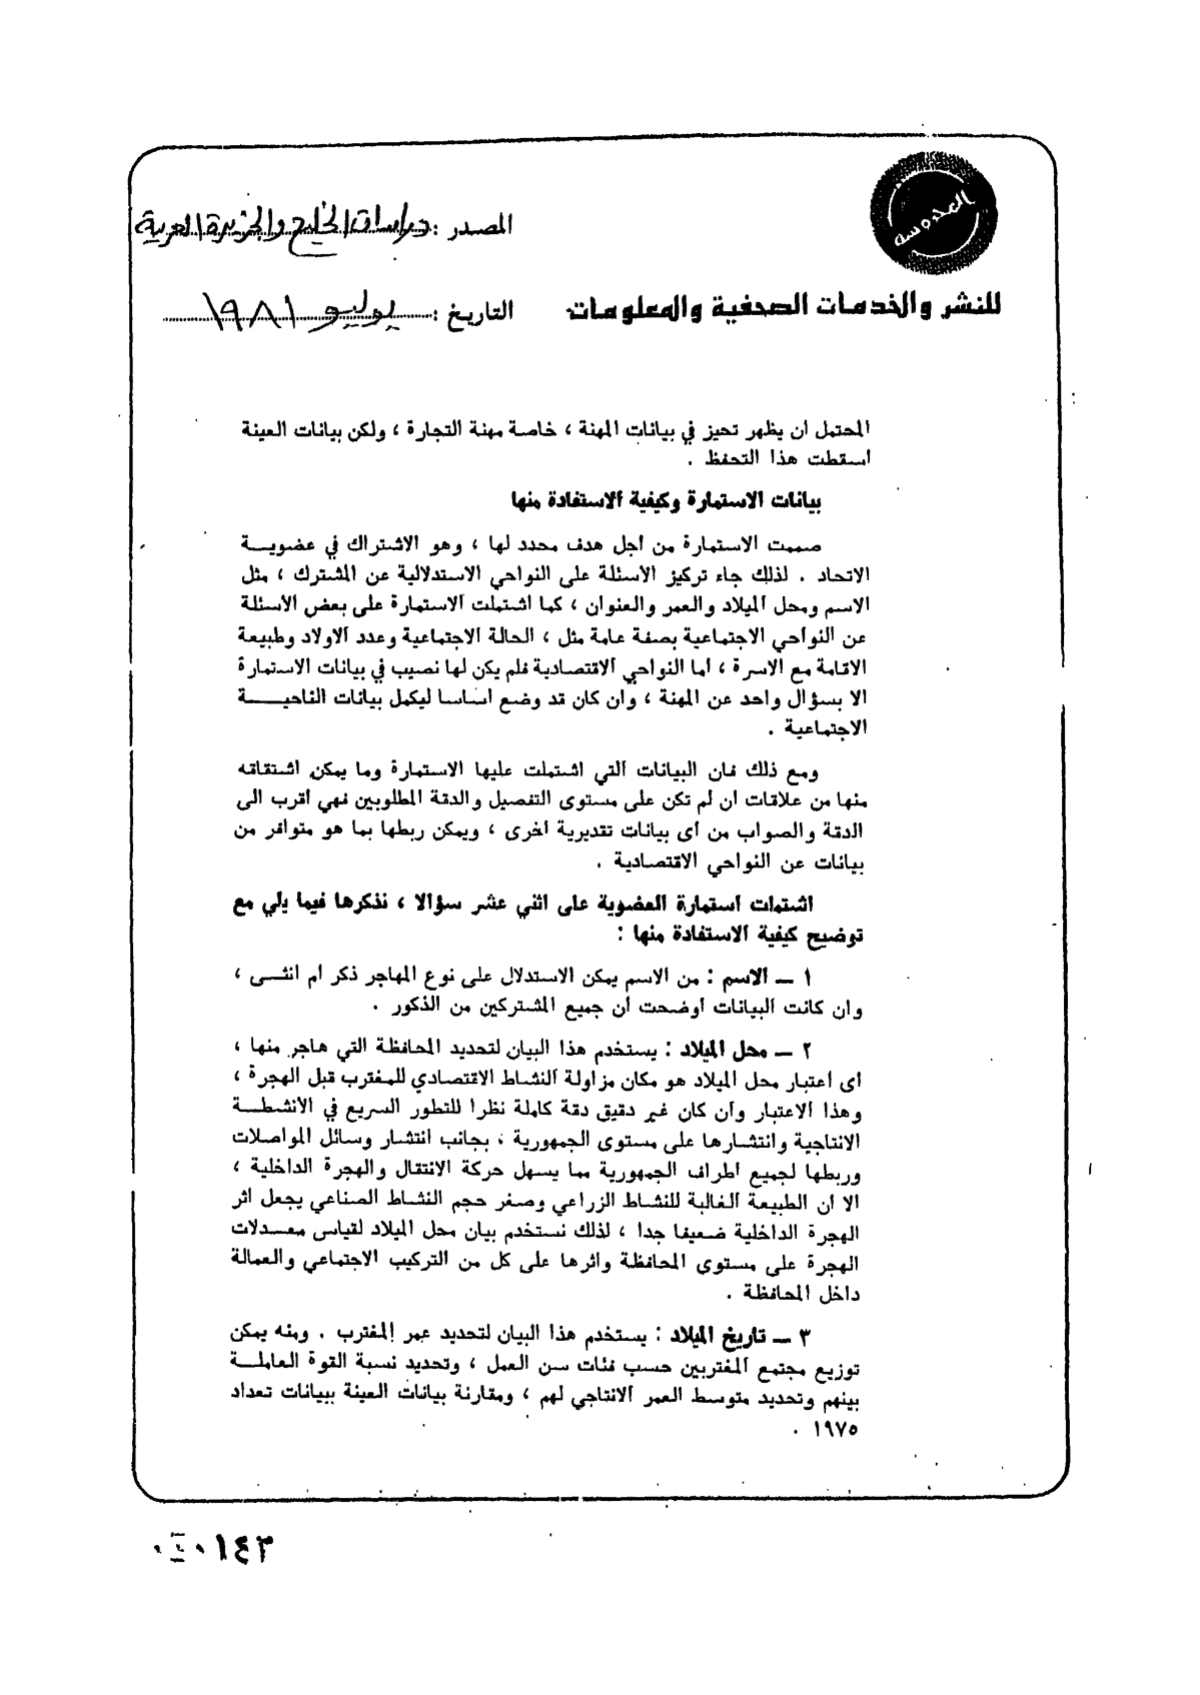 المحروسه
المصدر : دراسات الخليج والجزيرة العربية
للنشر والخدمات الصحفية والمعلومات
التاريخ : يوليو ١٩٨١
المحتمل ان يظهر تحيز في بيانات المهنة ، خاصة مهنة التجارة ، ولكن بيانات العينة
اسقطت هذا التحفظ .
بيانات الاستمارة وكيفية الاستفادة منها
صممت الاستمارة من اجل هدف محدد لها ، وهو الاشتراك في عضويــة
الاتحاد . لذلك جاء تركيز الاسئلة على النواحي الاستدلالية عن المشترك ، مثل
الاسم ومحل الميلاد والعمر والعنوان ، كما اشتملت الاستمارة على بعض الاسئلة
عن النواحي الاجتماعية بصفة عامة مثل ، الحالة الاجتماعية وعدد الاولاد وطبيعة
الاقامة مع الاسرة ، اما النواحي الاقتصادية فلم يكن لها نصيب في بيانات الاستمارة
الا بسؤال واحد عن المهنة ، وان كان قد وضع اساسا ليكمل بيانات الناحيــــة
الاجتماعية .
ومع ذلك فان البيانات التي اشتملت عليها الاستمارة وما يمكن اشتقاقه
منها من علاقات ان لم تكن على مستوى التفصيل والدقة المطلوبين فهي اقرب الى
الدقة والصواب من أى بيانات تقديرية اخرى ، ويمكن ربطها بما هو متوافر من
بيانات عن النواحي الاقتصادية .
اشتملت استمارة العضوية على اثني عشر سؤالا ، نذكرها فيما يلي مع
توضيح كيفية الاستفادة منها :
١ ــ الاسم : من الاسم يمكن الاستدلال على نوع المهاجر ذكر ام انثــى ،
وان كانت البيانات اوضحت ان جميع المشتركين من الذكور .
٢ ــ محل الميلاد : يستخدم هذا البيان لتحديد المحافظة التي هاجر منها ،
اى اعتبار محل الميلاد هو مكان مزاولة النشاط الاقتصادي للمغترب قبل الهجرة ،
وهذا الاعتبار وان كان غير دقيق دقة كاملة نظرا للتطور السريع في الانشطــة
الانتاجية وانتشارها على مستوى الجمهورية ، بجانب انتشار وسائل المواصلات
وربطها لجميع اطراف الجمهورية مما يسهل حركة الانتقال والهجرة الداخلية ،
الا ان الطبيعة الغالبة للنشاط الزراعي وصغر حجم النشاط الصناعي يجعل اثر
الهجرة الداخلية ضعيفا جدا ، لذلك نستخدم بيان محل الميلاد لقياس معــدلات
الهجرة على مستوى المحافظة واثرها على كل من التركيب الاجتماعي والعمالة
داخل المحافظة .
٣ ــ تاريخ الميلاد : يستخدم هذا البيان لتحديد عمر المغترب . ومنه يمكن
توزيع مجتمع المغتربين حسب فئات سن العمل ، وتحديد نسبة القوة العاملــة
بينهم وتحديد متوسط العمر الانتاجي لهم ، ومقارنة بيانات العينة ببيانات تعداد
١٩٧٥ .